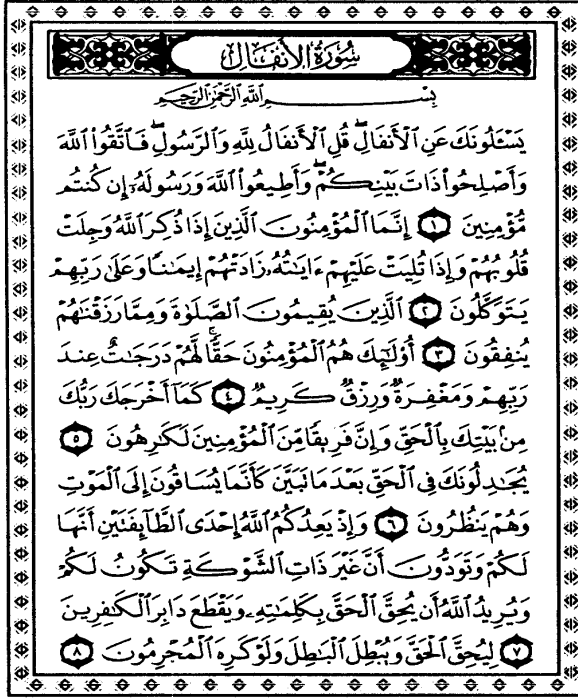 سُورَةُ الأَنفَالِ
بِسْمِ ٱللَّهِ ٱلرَّحْمَٰنِ ٱلرَّحِيمِ
يَسْـَٔلُونَكَ عَنِ ٱلْأَنفَالِ ۖ قُلِ ٱلْأَنفَالُ لِلَّهِ وَٱلرَّسُولِ ۖ فَٱتَّقُوا۟ ٱللَّهَ
وَأَصْلِحُوا۟ ذَاتَ بَيْنِكُمْ ۖ وَأَطِيعُوا۟ ٱللَّهَ وَرَسُولَهُۥٓ إِن كُنتُم
مُّؤْمِنِينَ ١ إِنَّمَا ٱلْمُؤْمِنُونَ ٱلَّذِينَ إِذَا ذُكِرَ ٱللَّهُ وَجِلَتْ
قُلُوبُهُمْ وَإِذَا تُلِيَتْ عَلَيْهِمْ ءَايَٰتُهُۥ زَادَتْهُمْ إِيمَٰنًا وَعَلَىٰ رَبِّهِمْ
يَتَوَكَّلُونَ ٢ ٱلَّذِينَ يُقِيمُونَ ٱلصَّلَوٰةَ وَمِمَّا رَزَقْنَٰهُمْ
يُنفِقُونَ ٣ أُو۟لَٰٓئِكَ هُمُ ٱلْمُؤْمِنُونَ حَقًّا ۚ لَّهُمْ دَرَجَٰتٌ عِندَ
رَبِّهِمْ وَمَغْفِرَةٌ وَرِزْقٌ كَرِيمٌ ٤ كَمَآ أَخْرَجَكَ رَبُّكَ
مِنۢ بَيْتِكَ بِٱلْحَقِّ وَإِنَّ فَرِيقًا مِّنَ ٱلْمُؤْمِنِينَ لَكَٰرِهُونَ ٥
يُجَٰدِلُونَكَ فِى ٱلْحَقِّ بَعْدَ مَا تَبَيَّنَ كَأَنَّمَا يُسَاقُونَ إِلَى ٱلْمَوْتِ
وَهُمْ يَنظُرُونَ ٦ وَإِذْ يَعِدُكُمُ ٱللَّهُ إِحْدَى ٱلطَّآئِفَتَيْنِ أَنَّهَا
لَكُمْ وَتَوَدُّونَ أَنَّ غَيْرَ ذَاتِ ٱلشَّوْكَةِ تَكُونُ لَكُمْ
وَيُرِيدُ ٱللَّهُ أَن يُحِقَّ ٱلْحَقَّ بِكَلِمَٰتِهِۦ وَيَقْطَعَ دَابِرَ ٱلْكَٰفِرِينَ
٧ لِيُحِقَّ ٱلْحَقَّ وَيُبْطِلَ ٱلْبَٰطِلَ وَلَوْ كَرِهَ ٱلْمُجْرِمُونَ ٨